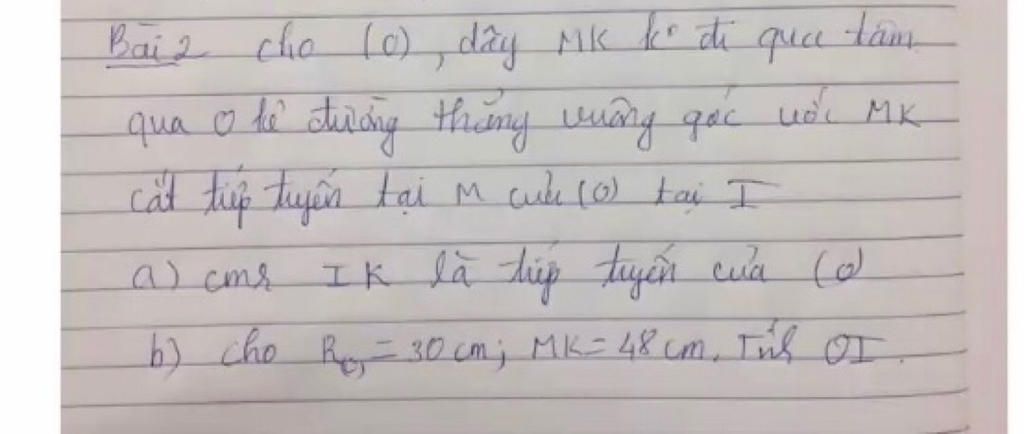 Bài 2 cho (O), dây MK k° đi qua tâm
qua O kẻ đường thẳng vuông góc với MK
cắt tiếp tuyến tại M của (O) tại I
a) cmr IK là tiếp tuyến của (O)
b) cho R(O) = 30 cm; MK = 48 cm. Tính OI.